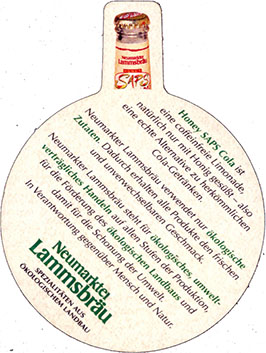 Neumarkter
Lammsbräu
SAPS
Honey SAPS Cola ist
eine coffeinfreie Limonade,
natürlich nur mit Honig gesüßt – also
eine echte Alternative zu herkömmlichen
Cola-Getränken.
Neumarkter Lammsbräu verwendet nur ökologische
Zutaten. Dadurch erhalten alle Produkte den frischen
und unverwechselbaren Geschmack.
Neumarkter Lammsbräu steht für ökologisches, umwelt-
verträgliches Handeln auf allen Stufen der Produktion,
für die Förderung des ökologischen Landbaus und
damit für die Schonung der Umwelt.
In Verantwortung gegenüber Mensch und Natur.
Neumarkter
Lammsbräu
SPEZIALITÄTEN AUS
ÖKOLOGISCHEM LANDBAU